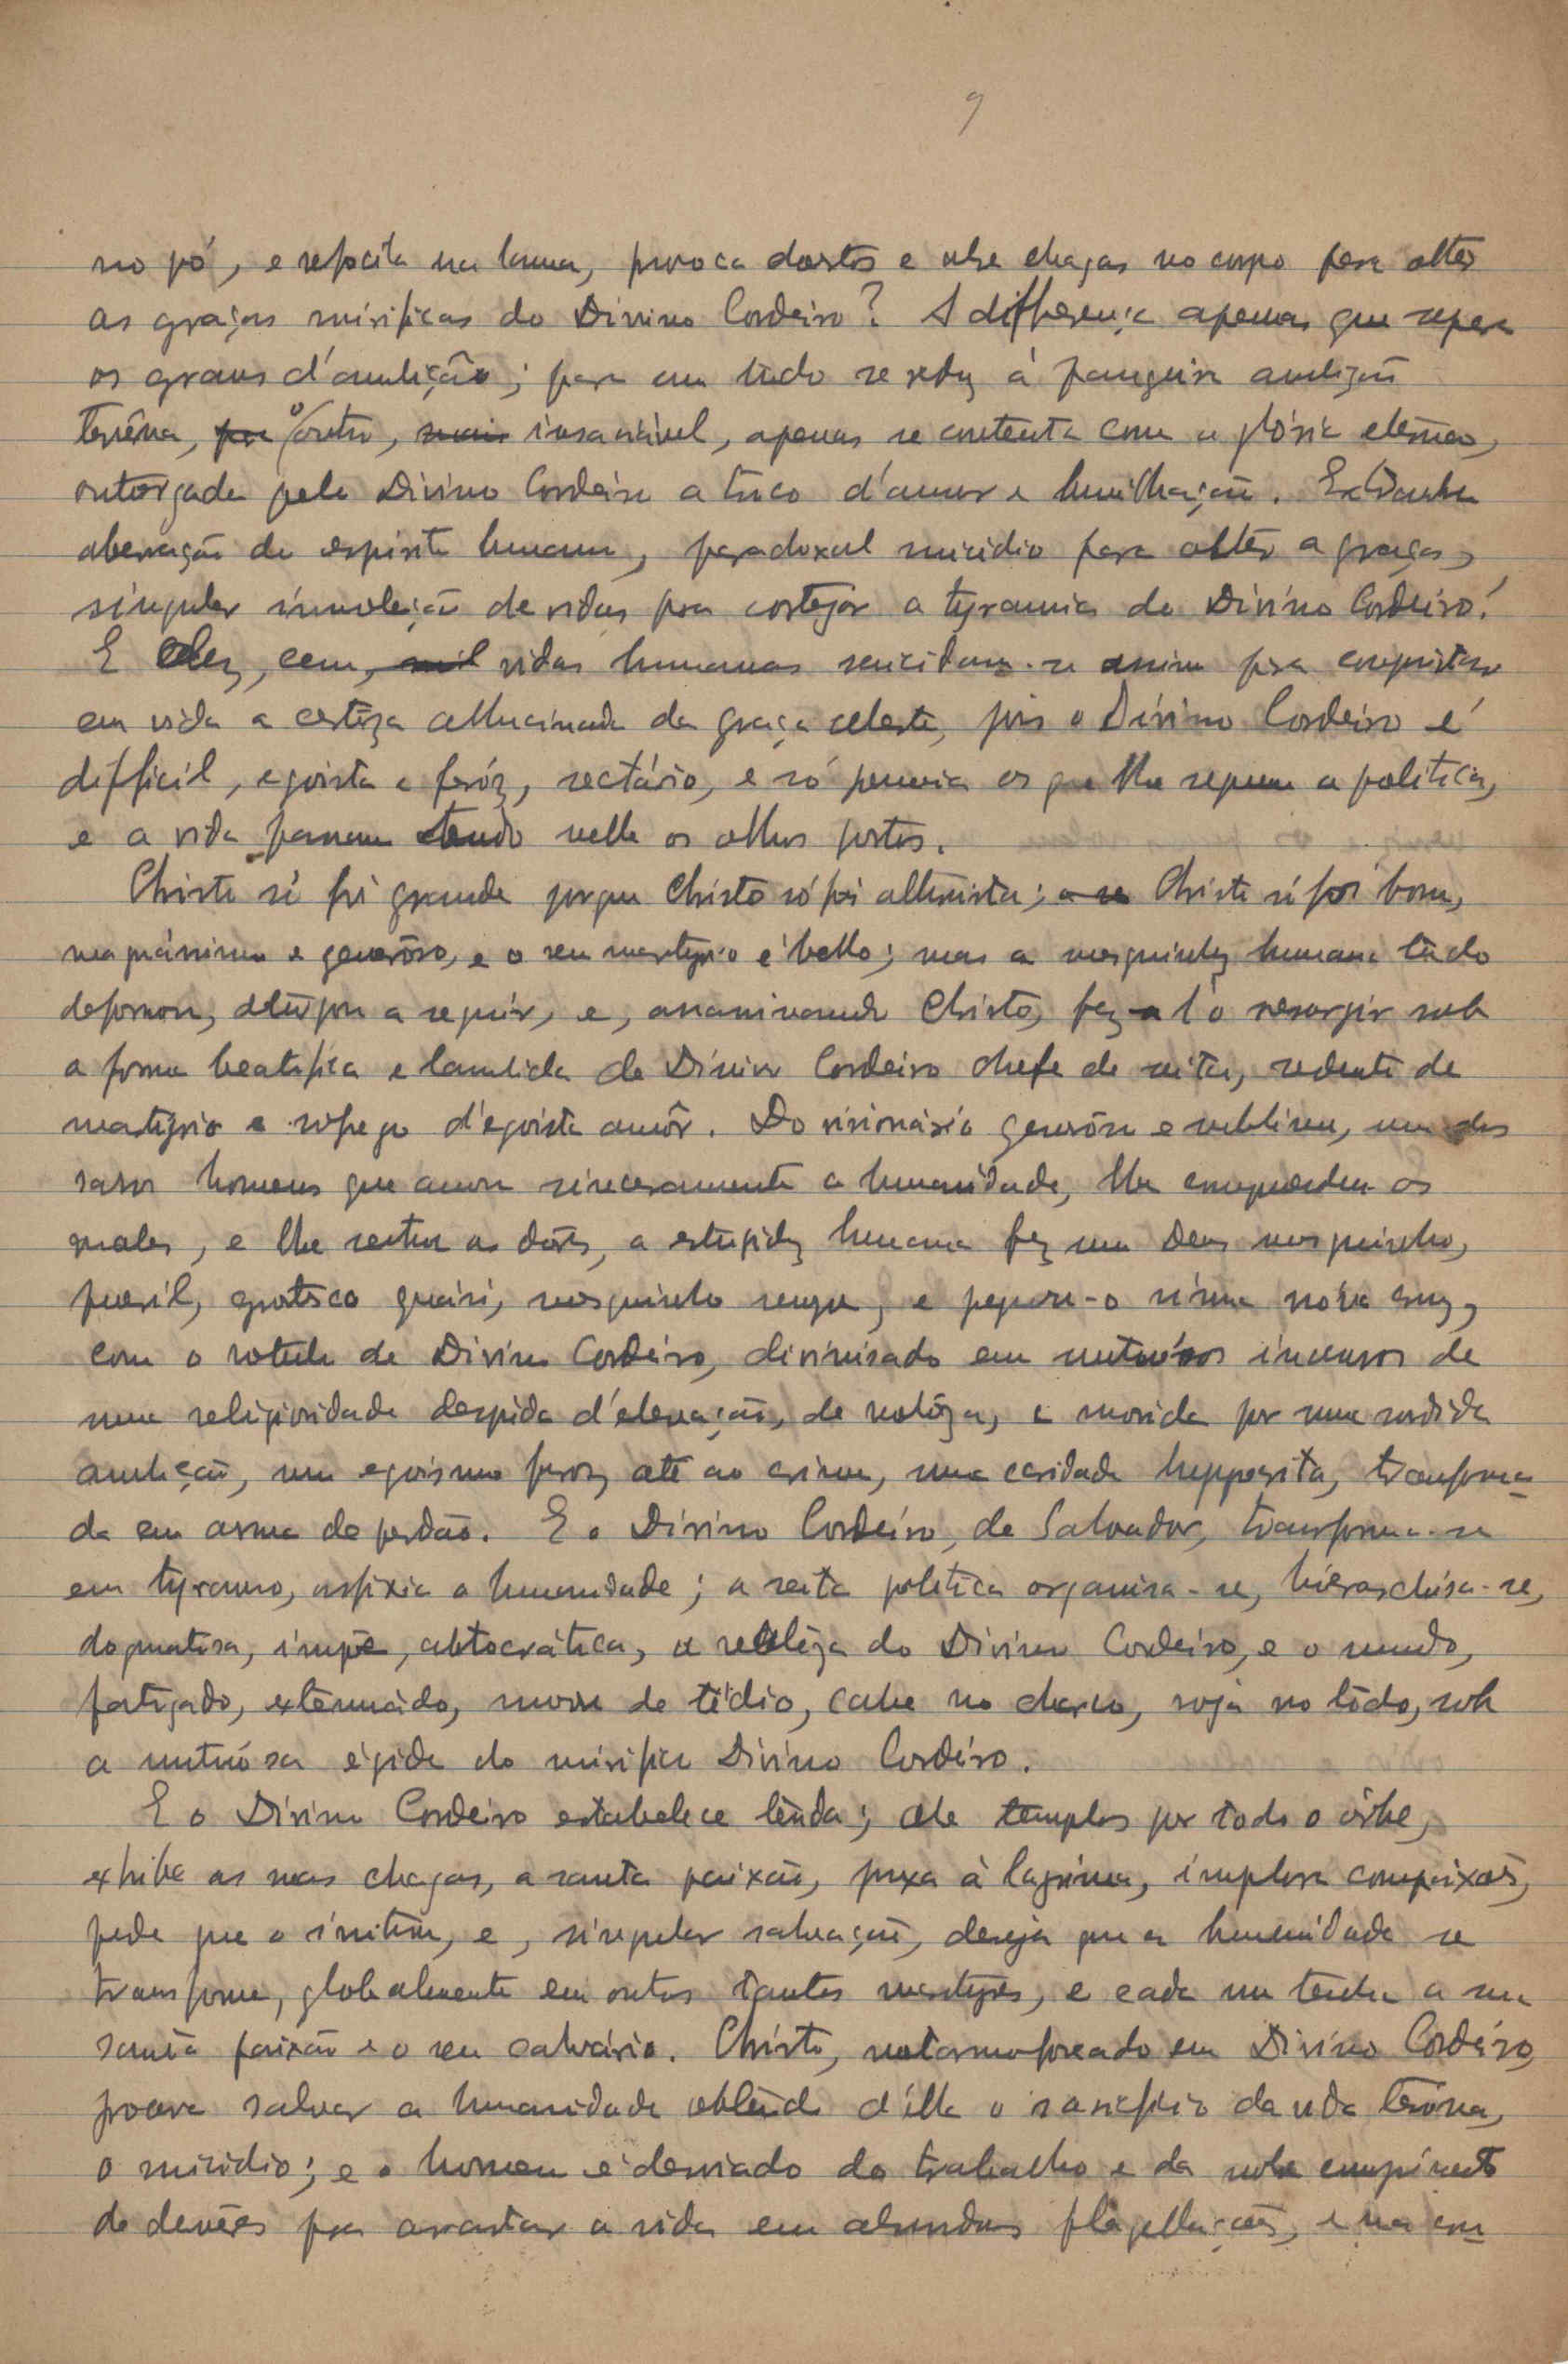 9
no pó, e refocila na lama, provoca dartros e abre chagas no corpo para obter
as graças mirificas do Divino Cordeiro? A differença apenas que separa
os graus d'ambição; para um tudo se reduz á ambição
terrêna, o outro, insaciável, apenas se contenta com a glória eterna,
outorgada pelo Divino Cordeiro a trôco d'amor e humilhação. Extranha
aberração do espirito humano, paradoxal suicidio para obter a graça,
singular immolação de vidas pra cortejar a tyrannia do Divino Cordeiro!
E dez, cem, vidas humanas suicidam-se assim pra conquistar
em vida a certêza allucinada da graça celeste, pois o Divino Cordeiro é
difficil, egoista e feróz, sectário, e só premeia os que lhe seguem a politica,
e a vida passam tendo nelle os olhos postos.
Christo só foi grande porque Christo só foi altruista; Christo só foi bom,
magnánimo e generôso, e o seu martyrio é bello; mas a mesquinhez humana tudo
deformou, deturpou a seguir, e, assassinando Christo, fez-o resurgir sob
a forma beatifica e lambida do Divino Cordeiro chefe de seita, sedento de
martyrio e sofrego d'egoista amôr. Do visionário generôso e sublime, um dos
raros homens que amou sinceramente a humanidade, lhe comprehendeu os
males, e lhe sentiu as dôres, a estupidez humana fez um Deus mesquinho,
pueril, grotesco quási, mesquinho sempre, e pegou-o n'uma nóva cruz,
com o rotulo de Divino Cordeiro, divinisado em untuósos incensos de
uma religiosidade despida d'elevação, de nobrêza, e movida por uma sordida
ambição, um egoismo feroz até ao crime, uma caridade hyppocrita, transforma-
da em arma de perdão. E o Divino Cordeiro, de Salvador, transforma-se
em tyranno, asfixia a humanidade; a seita politica organisa-se, hierarchisa-se,
dogmatisa, impõe, autocrática, a realêza do Divino Cordeiro, e o mundo,
fatigado, extenuado, morre de tédio, cahe no charco, roja no lôdo, sob
a untuósa égide do mirifico Divino Cordeiro.
E o Divino Cordeiro estabelece tenda; abre templos por todo o órbe,
exhibe as suas chagas, a santa paixão, puxa á lagrima, implora compaixão,
pede que o imitem, e, singular salvação, deseja que a humanidade se
transforme, globalmente em outros tantos martyres, e cada um tenha a sua
santa paixão e o seu calvário. Christo, metamorfoseado em Divino Cordeiro,
procura salvar a humanidade obtendo d'ella o sacrificio da vida terrêna,
o suicidio; e o homem é desviado do trabalho e da nobre cumprimento
de devêres pra arrastar a vida em absurdas flagellações, e na con-